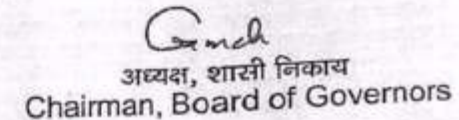 अध्यक्ष, शासी निकाय
Chairman, Board of Governors